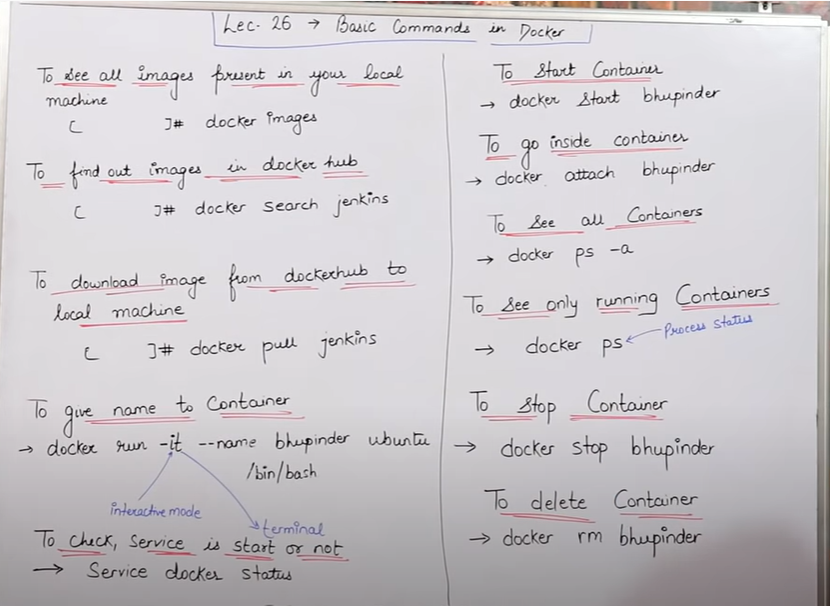 Lec. 26 → Basic Commands in Docker
To see all images present in your local
machine
[ ]# docker images
To find out images in docker hub
[ ]# docker search jenkins
To download image from dockerhub to
local machine
[ ]# docker pull jenkins
To give name to Container
→ docker run -it --name bhupinder ubuntu
/bin/bash
interactive mode
terminal
To check, service is start or not
→ Service docker status
To Start Container
→ docker start bhupinder
To go inside container
→ docker attach bhupinder
To see all Containers
→ docker ps -a
To see only running Containers
Process status
→ docker ps
To stop Container
→ docker stop bhupinder
To delete Container
→ docker rm bhupinder